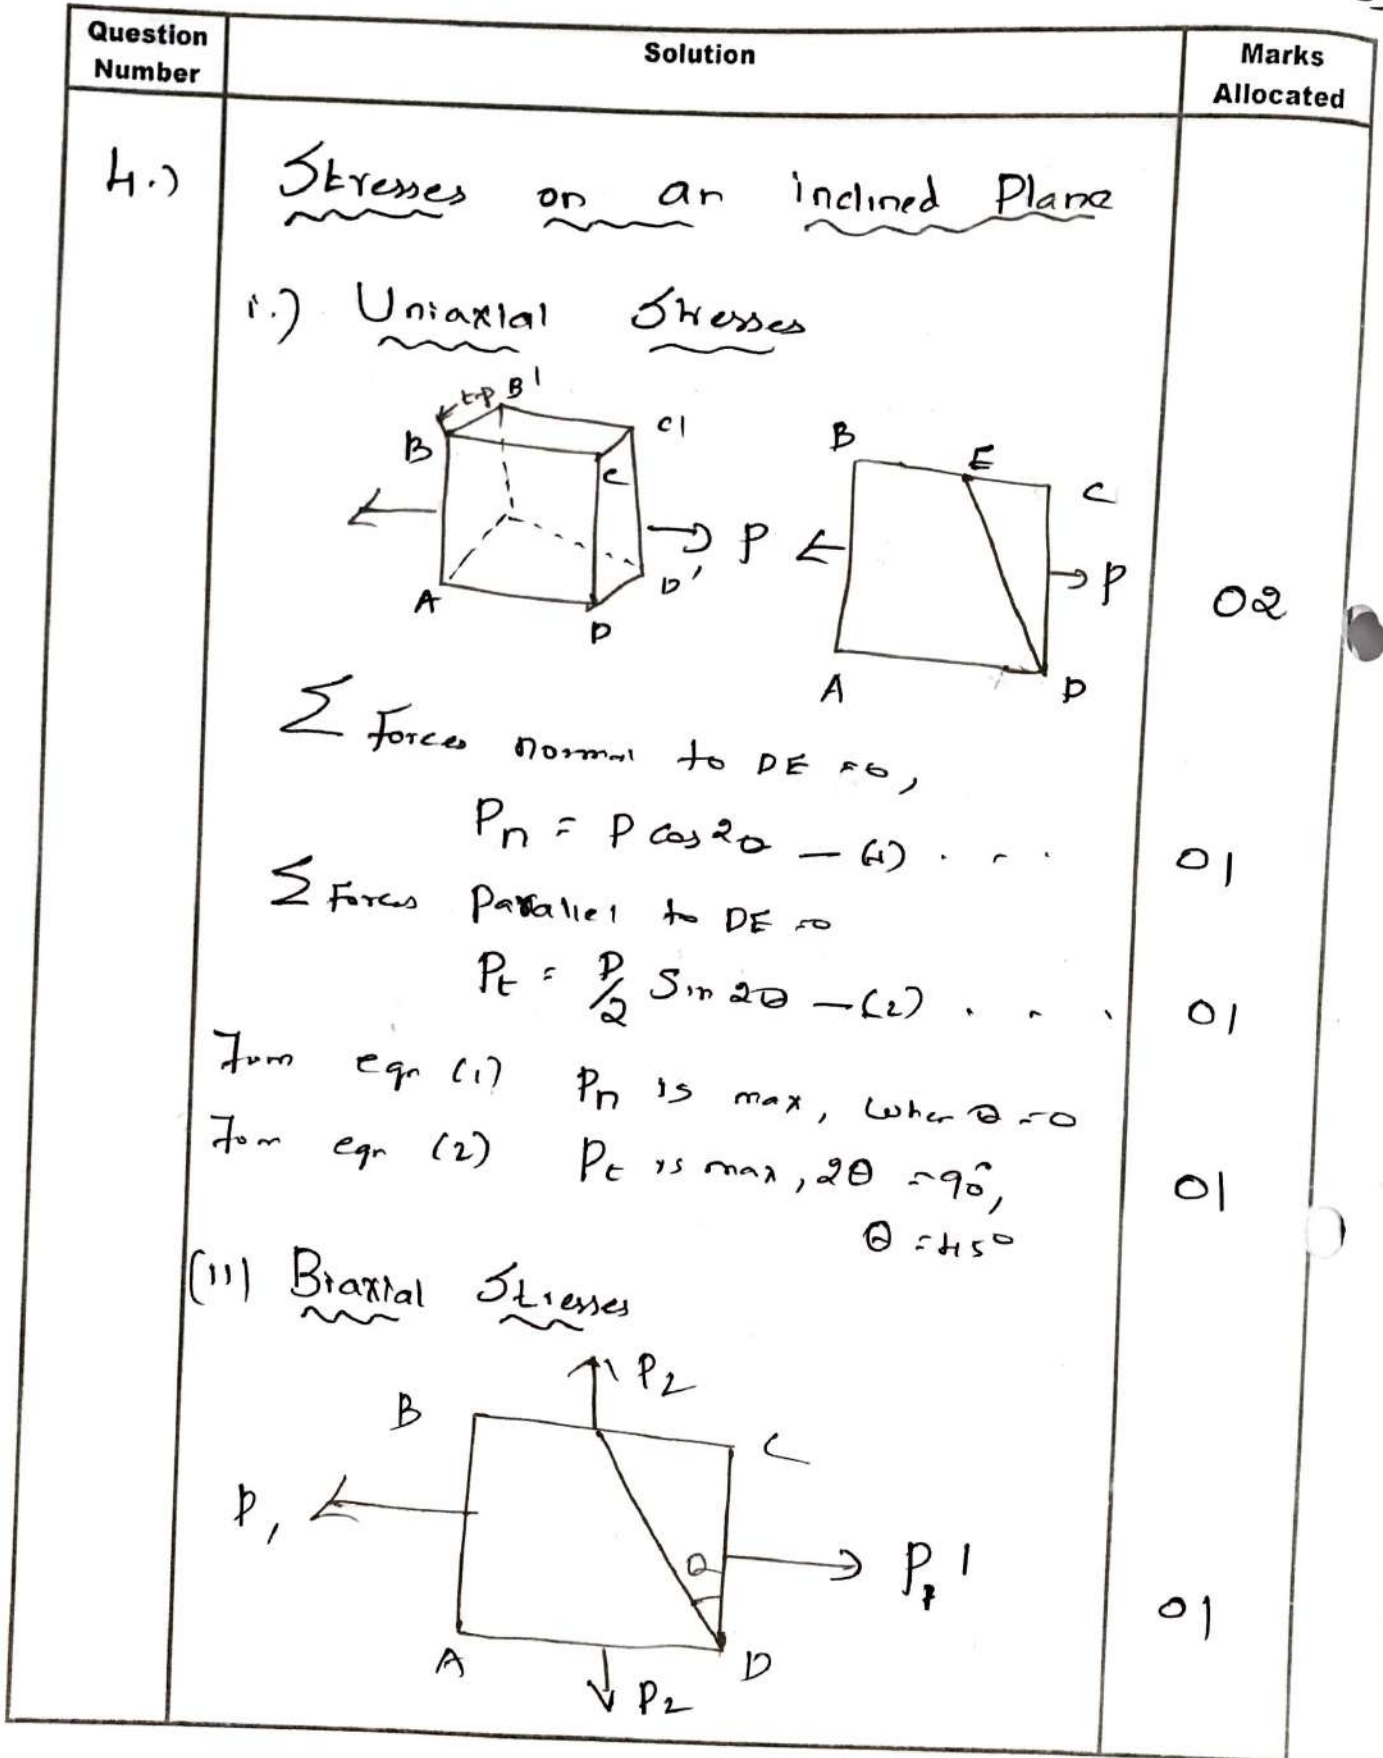 Question Number
Solution
Marks Allocated
4.)
Stresses on an inclined Plane
i.) Uniaxial Stresses
B'
B
C1
C
P
A
D'
D
B
E
C
P
A
D
02
Σ Forces normal to DE =0,
Pn = P cos2θ — (1) . . .
01
Σ Forces Parallel to DE =0
Pt = P/2 Sin 2θ — (2) . . .
01
eqn (1) Pn is max, when θ =0
eqn (2) Pt is max, 2θ =90°,
01
θ =45°
(ii) Biaxial Stresses
P2
B
C
P1
θ
01
A
D
P2